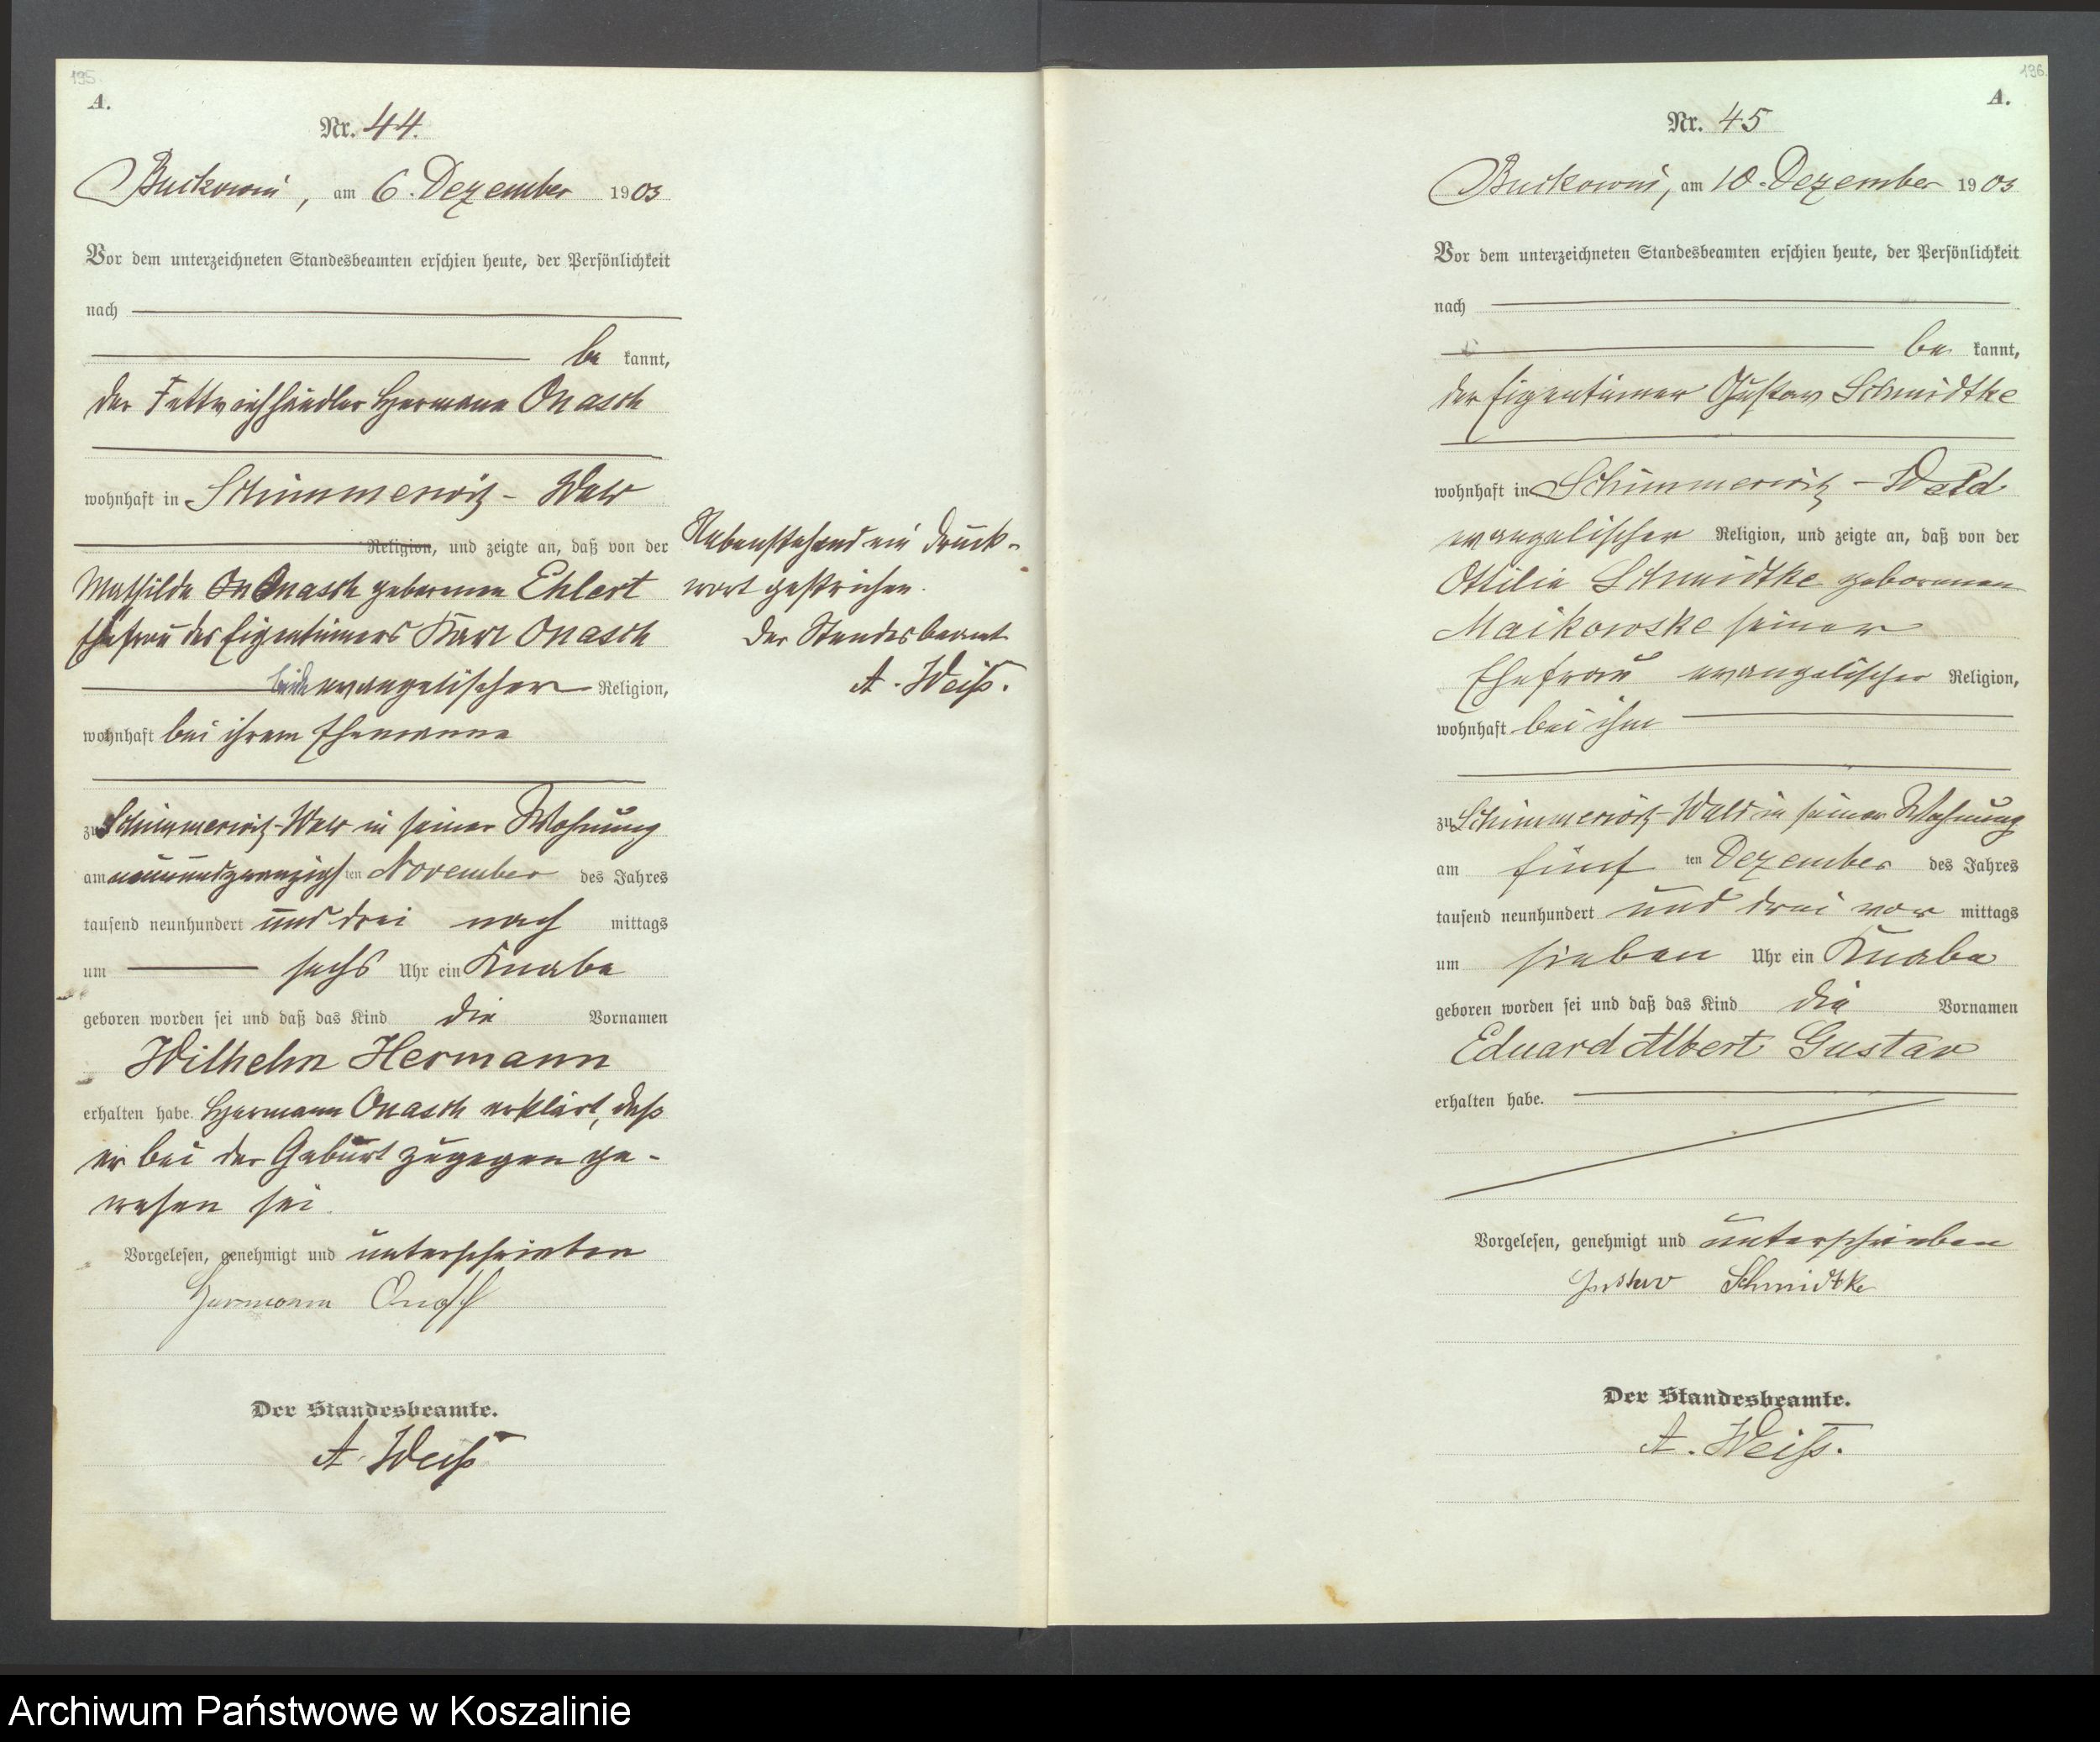 195
A.
Nr. 44.
Buckowin, am 6. Dezember 1903
Vor dem unterzeichneten Standesbeamten erschien heute, der Persönlichkeit
nach
be kannt,
der Fettviehhändler Hermann Onasch
wohnhaft in Schimmerwitz - Wald
Religion, und zeigte an, daß von der
Mathilde On Onasch geborenen Ehlert
Ehefrau des Eigentümers Karl Onasch
beide evangelischer Religion,
wohnhaft bei ihrem Ehemanne
zu Schimmerwitz-Wald in seiner Wohnung
am neunundzwanzigsten November des Jahres
tausend neunhundert und drei nach mittags
um sechs Uhr ein Knabe
geboren worden sei und daß das Kind die Vornamen
Wilhelm Hermann
erhalten habe. Hermann Onasch erklärt, daß
er bei der Geburt zugegen ge-
wesen sei.
Vorgelesen, genehmigt und unterschrieben
Hermann Onasch
Der Standesbeamte.
A. Weiß
Nebenstehend ein Druck-
wort gestrichen.
Der Standesbeamt
A. Weiß.
196
A.
Nr. 45
Buckowin, am 10. Dezember 1903
Vor dem unterzeichneten Standesbeamten erschien heute, der Persönlichkeit
nach
be kannt,
der Eigentümer Gustav Schmidtke
wohnhaft in Schimmerwitz - Wald
evangelischer Religion, und zeigte an, daß von der
Ottilie Schmidtke geborenen
Maikowske seiner
Ehefrau evangelischer Religion,
wohnhaft bei ihm
zu Schimmerwitz-Wald in seiner Wohnung
am fünf ten Dezember des Jahres
tausend neunhundert und drei vor mittags
um sieben Uhr ein Knabe
geboren worden sei und daß das Kind die Vornamen
Eduard Albert Gustav
erhalten habe.
Vorgelesen, genehmigt und unterschrieben
Gustav Schmidtke
Der Standesbeamte.
A. Weiß.
Archiwum Państwowe w Koszalinie